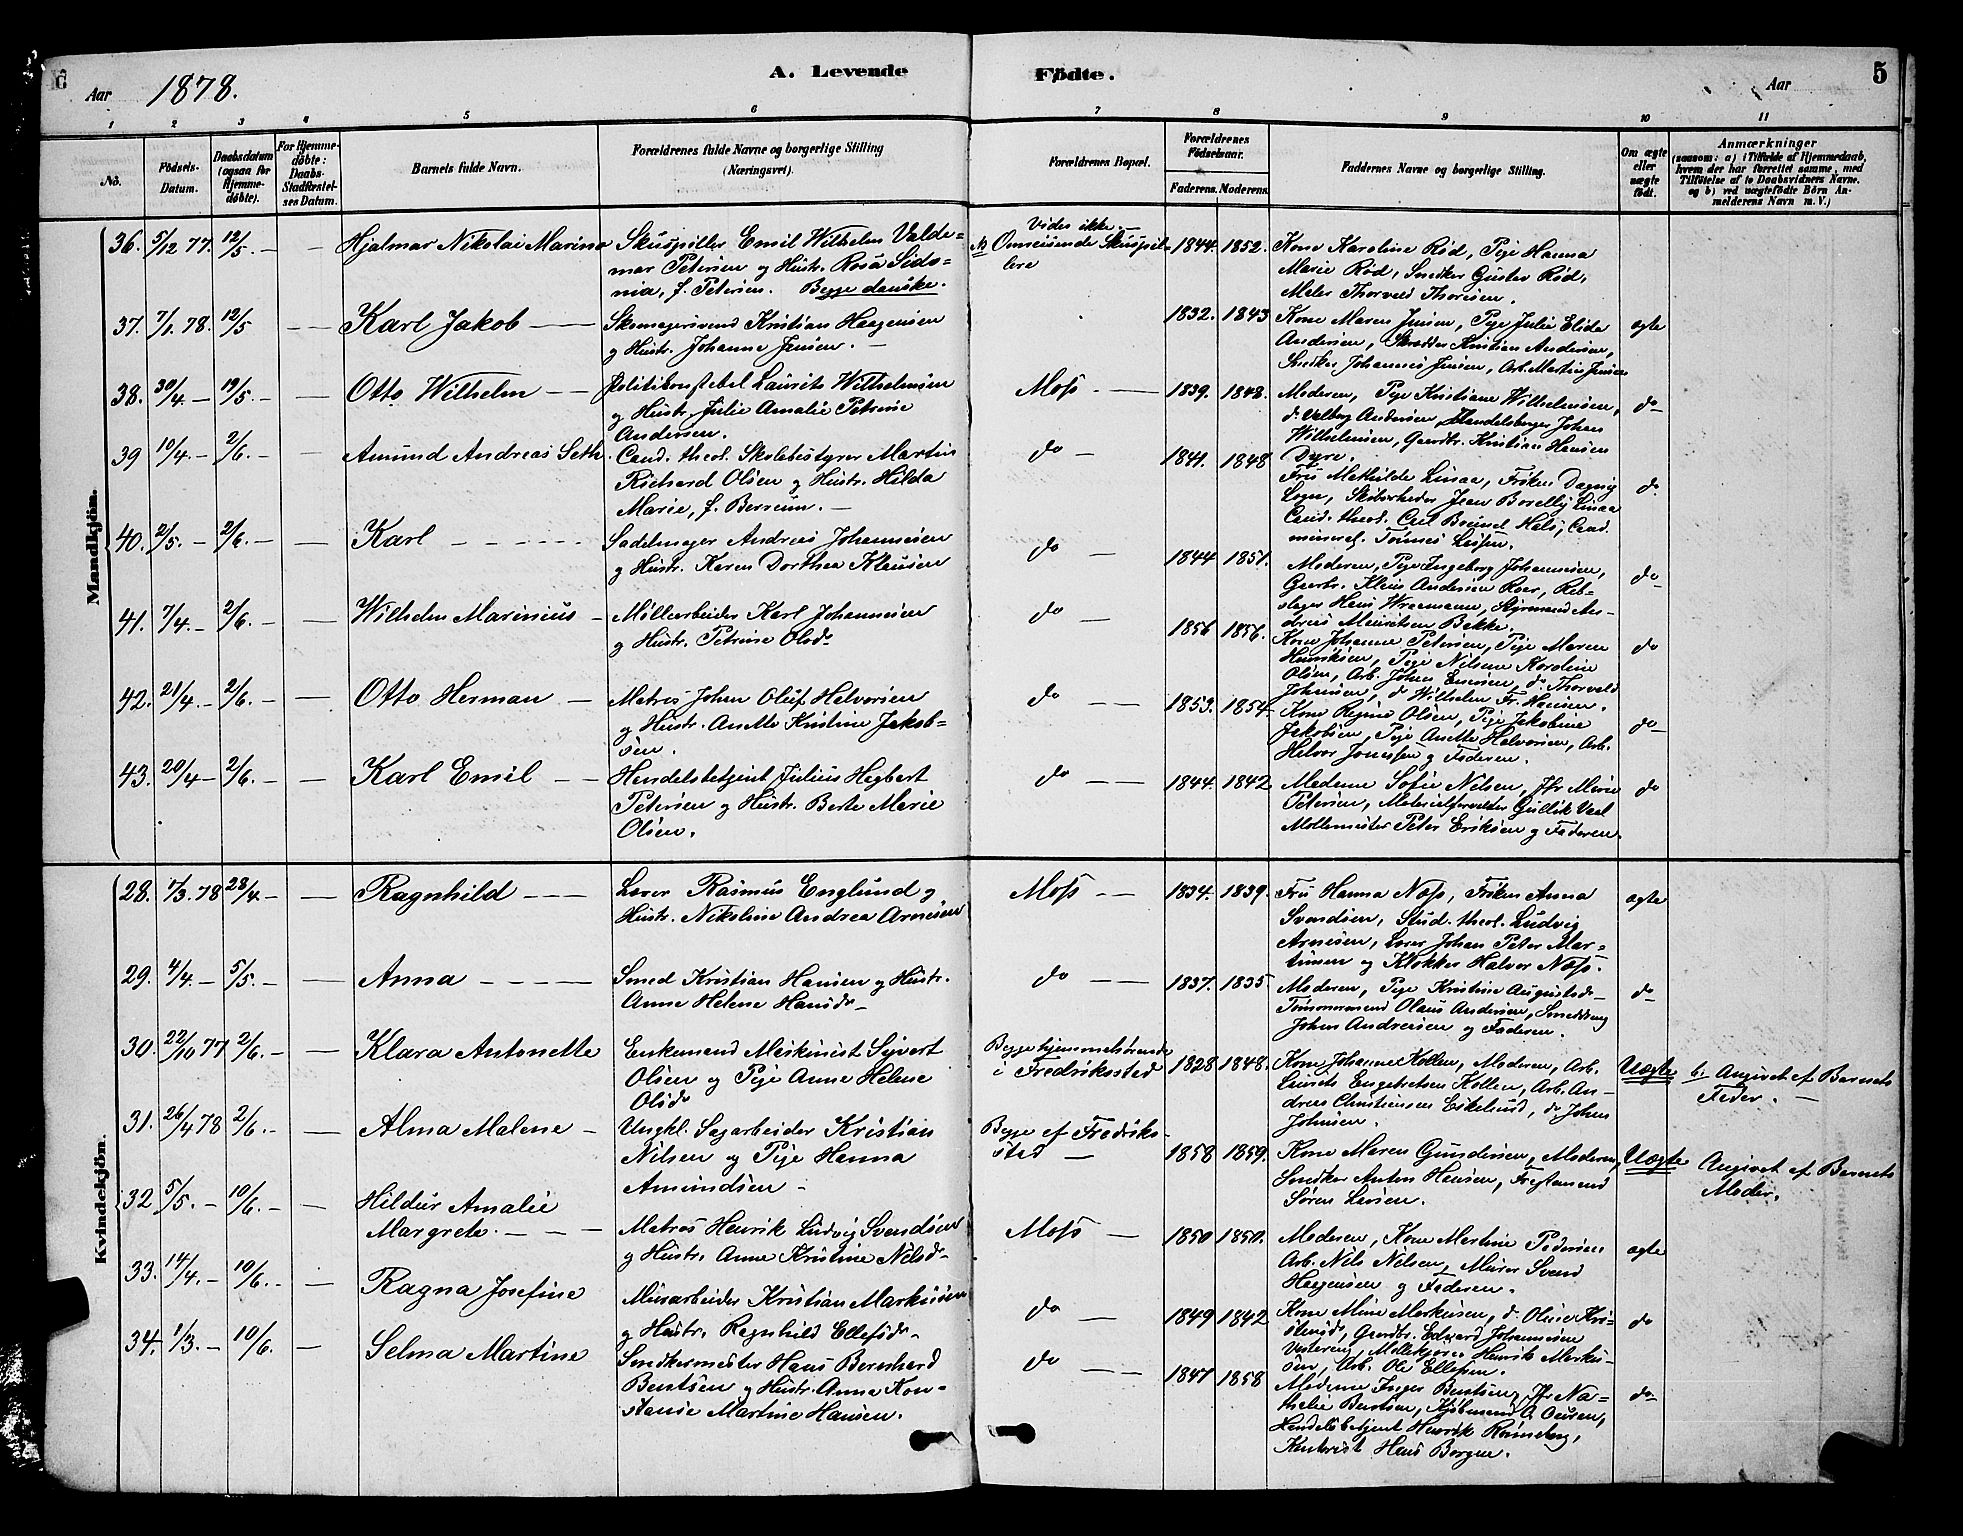 A. Levende Fødte.
5
Aar 1878.
Aar
1 2 3 4 5 6 7 8 9 10 11
No.
Fødsels-
Datum.
Daabsdatum
(ogsaa for
Hjemme-
døbte).
For Hjemme-
døbte:
Daabs-
Stadfæstel-
ses Datum.
Barnets fulde Navn.
Forældrenes fulde Navne og borgerlige Stilling
(Næringsvei).
Forældrenes Bopæl.
Forældrenes
Fødselsaar.
Faderens. Moderens.
Faddernes Navne og borgerlige Stilling.
Om ægte
eller
uægte
født.
Anmærkninger
(saasom: a) i Tilfælde af Hjemmedaab,
hvem der har forrettet samme, med
Tilføielse af to Daabsvidners Navne,
og b) ved uægtefødte Børn An-
melderens Navn m. V.)
Mandkjön.
36. 5/12 77. 12/5 — — Hjalmar Nikolai Marino
Skuespiller Emil Wilhelm Valde=
mar Petersen og Hustr. Rosa Sido=
nia, f. Petersen. Begge danske.
Vides ikke —
Omreisende Skuespil=
lere
1844. 1852.
Kone Karoline Rød, Pige Hanna
Marie Rød, Snedker Gustav Rød,
Maler Thorvald Thoresen.
37. 7/1. 78. 12/5 — — Karl Jakob —
Skomagersvend Kristian Haagensen
og Hustr. Johanne Jensen. —
1832. 1843
Kone Maren Jensen, Pige Julie Elida
Andersen, Skrædder Kristian Andersen,
Snedker Johannes Jensen, Arb. Martin Jensen
ægte
38. 30/4. — 19/5. — — Otto Wilhelm — —
Politikonstabel Laurits Wilhelmsen
og Hustr. Julie Amalie Petrine
Andersen.
Moss — —
1839. 1848.
Moderen, Pige Kristiane Wilhelmsen,
d. Valborg Andersen, Handelsborger Johan
Wilhelmsen, Gaardbr. Kristian Hansen
Dyre.
do —
39 10/4. — 2/6. — — Amund Andreas Seth.
Cand. theol. Skolebestyrer Martin
Richard Olsen og Hustr. Hilda
Marie, f. Berrum. —
do —
1841. 1848
Fru Mathilde Linaa, Frøken Dagny
Skibsrheder Jean Linaa
Cand. theol. Carl Hals, Cand.
mineral.
do.
40. 2/5. — 2/6. — — Karl — — — — —
Sadelmager Andreas Johannesen
og Hustr. Karen Dorthea Klausen
do —
1844 1851.
Moderen, Pige Ingeborg Johannesen,
Gaardbr. Klaus Andersen Roer, Reb=
slager Hans Styrmand An=
dreas Mauritsen Bakke.
do —
41. 7/4. — 2/6. — — Wilhelm Marinius —
Møllearbeider Karl Johannesen
og Hustr. Petrine Olsdr
do —
1856 1856.
Kone Johanne Petersen, Pige Maren
Henriksen, Pige Nilsine Karoline
Olsen, Arb. Johan d. Thorvald
Johansen, d. Wilhelm Fr. Hansen.
do
42. 21/4. — 2/6. — — Otto Herman —
Matros Johan Oluf Halvorsen
og Hustr. Anette Kristine Jakob=
sen.
do — —
1853. 1854.
Kone Regine Olsen, Pige Jakobine
Jakobsen, Pige Anette Halvorsen, Arb.
Halvor og Faderen.
do —
43. 20/4 — 2/6. — — Karl Emil — —
Handelsbetjent Julius Hegbert
Petersen og Hustr. Berte Marie
Olsen.
do — —
1844. 1842
Madame Sofie Nilsen, Jfr Marie
Petersen, Materialforvalter Gullik Vaal
Møllemester Peter Eriksen og Faderen.
do
Kvindekjön.
28. 7/3. 78 28/4. — — Ragnhild — — —
Lærer Rasmus Englund og
Hustr. Nikoline Andrea Arnesen
Moss — —
1834. 1839.
Fru Hanna Næss, Frøken Anna
Svendsen, Stud. theol. Ludvig
Arnesen, Lærer Johan Peter Mar=
tinsen og Klokker Halvor Næss.
ægte
29. 4/4. — 5/5. — — Anna — — — — —
Smed Kristian Hansen og Hustr.
Anne Helene Hansdr —
do — —
1837. 1835
Moderen, Pige Kristine Augustsdr —
Tømmermand Olaus Andersen, Smeddreng
Johan Andreasen og Faderen.
do —
30. 22/10 77 2/6. — — Klara Antonette
Enkemand Maskinist Syvert
Olsen og Pige Anne Helene
Olsdr
Begge hjemmehørende
i Fredriksstad
1828 1848.
Kone Johanne Kollen, Moderen, Arb.
Laurits Engebretsen Kollen, Arb. An=
dreas Christiansen Eskelund, do Johan
Johnsen.
Uægte
b. Angivet af Barnets
Fader. —
31. 26/4 78 2/6. — — Alma Malene —
Ungkl. Sagarbeider Kristian
Nilsen og Pige Hanna
Amundsen —
Begge af Fredriks=
stad —
1858 1859.
Kone Maren Gundersen, Moderen,
Snedker Anton Hansen, Fragtemand
Søren Larsen.
Uægte
Angivet af Barnets
Moder.
32 5/5. — 10/6. — — Hildur Amalie
Margrete. — —
Matros Henrik Ludvig Svendsen
og Hustr. Anne Kristine Nilsdr —
Moss —
1850 1850.
Moderen, Kone Martine Pedersen
Arb. Nils Nilsen, Murer Svend
Haagensen og Faderen.
ægte
33. 14/4. — 10/6. — — Ragna Josefine
Murarbeider Kristian Markusen
og Hustr. Ragnhild Ellefsdr —
do —
1849 1842
Kone Mina Markusen, d. Olive Kri=
stensdr, Gaardbr. Edvard Johannesen
Vestereng, Møllekjører Henrik Marku=
sen, Arb. Ole Ellefsen.
do
34. 1/3. — 10/6. — Selma Martine
Snedkermester Hans Bernhard
Berntsen og Hustr. Anna Kon=
stanse Martine Hansen.
do — —
1847 1858
Madame Inger Berntsen, Jfr Na=
thalie Berntsen, Kjøbmand
Handelsbetjent Henrik Rønneberg,
Kontorist Hans Borgen.
do —